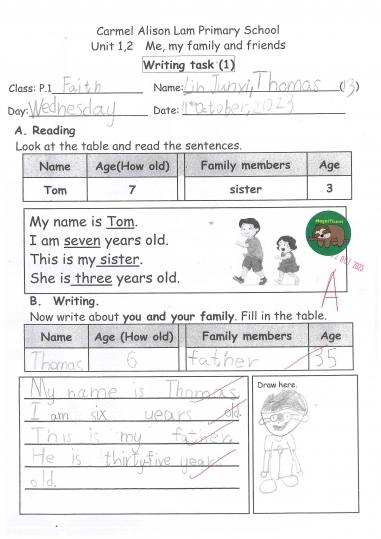 Carmel Alison Lam Primary School
Unit 1,2 Me, my family and friends
Writing task (1)
Class: P.1 Faith Name: Lin Junyi, Thomas (13)
Day: Wednesday Date: 11th October, 2023
A. Reading
Look at the table and read the sentences.
Name Age(How old) Family members Age
Tom 7 sister 3
My name is Tom.
I am seven years old.
This is my sister.
She is three years old.
Magnificent
A
B. Writing.
Now write about you and your family. Fill in the table.
Name Age (How old) Family members Age
Thomas 6 father 35
My name is Thomas.
I am six years old.
This is my father.
He is thirty-five years
old.
Draw here.